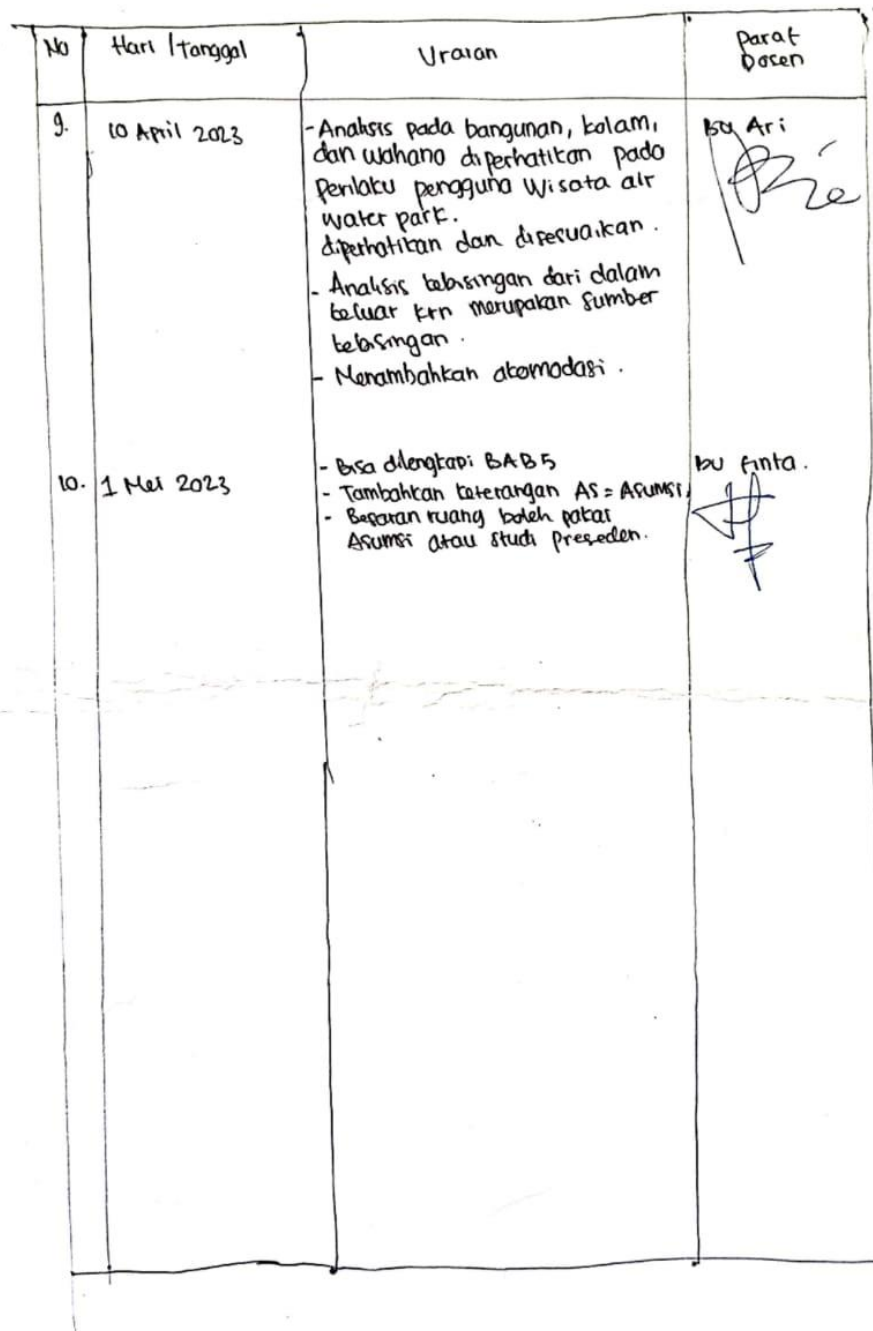 No
Hari / Tanggal
Uraian
Paraf
Dosen
9.
10 April 2023
- Analisis pada bangunan, kolam,
dan wahana diperhatikan pada
Perilaku pengguna Wisata air
water park.
diperhatikan dan disesuaikan.
- Analisis kebisingan dari dalam
keluar krn merupakan sumber
kebisingan.
- Menambahkan akomodasi.
Bu Ari
10.
1 Mei 2023
- Bisa dilengkapi BAB 5
- Tambahkan keterangan AS = Asumsi.
- Besaran ruang boleh pakai
Asumsi atau studi Preseden.
bu Sinta.